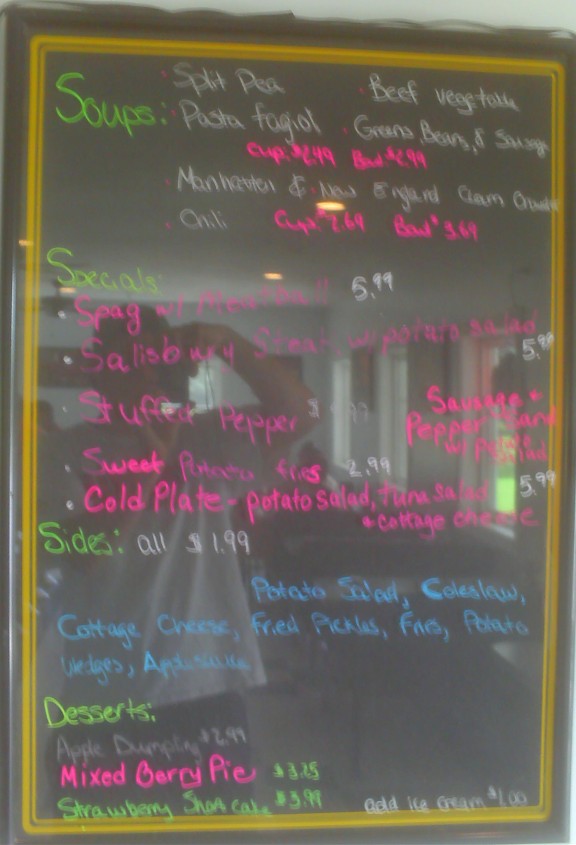 Soups: Split Pea Beef vegetable
Pasta fagiol Greens, Beans, & Sausage
Cup: $2.49 Bowl $2.99
Manhattan & New England Clam Chowder
Chili Cup: $2.69 Bowl $3.69
Specials:
Spag w/ Meatball 5.99
Salisbury Steak w/ potato salad 5.99
Stuffed Pepper $ .99
Sausage +
Pepper Sand
w/ potato
salad
Sweet Potato fries 2.99
Cold Plate - potato salad, tuna salad 5.99
+ cottage cheese
Sides: all $1.99
Potato Salad, Coleslaw,
Cottage Cheese, Fried Pickles, Fries, Potato
Wedges, Applesauce
Desserts:
Apple Dumpling $2.99
Mixed Berry Pie $3.25
Strawberry Shortcake $3.99 add ice cream $1.00